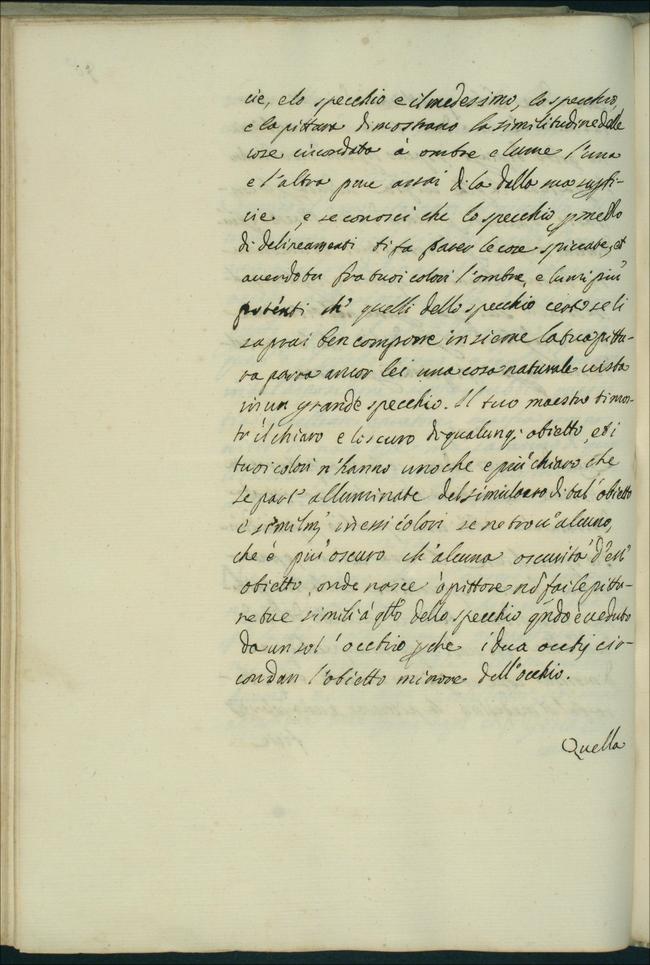 cie, e lo specchio e il medessimo, lo specchio,
e la pittura dimostrano la similitudine delle
cose circondata à ombre e lume l'una
e l'altra pare assai di la dalla sua supfi-
cie, e se conosci che lo specchio p mezzo
di delineamenti ti fa paver le cose spiccate, et
avendo tu fra tuoi colori l'ombre, e lumi più
potenti ch' quelli dello specchio certo se li
saprai ben comporre insieme la tua pittu-
ra parra ancor lei una cosa naturale vista
in un grande specchio. Il tuo maestro ti mos-
tr' il chiaro e lo scuro di qualunq; obietto, et i
tuoi colori n'hanno uno che e più chiaro che
le part' alluminate del simulacro di tal' obietto
e similmᵗ in essi colori se ne trou' alcuno,
che è più oscuro ch' alcuna oscurità d' ess'
obietto, onde nasce ò pittore nō fai le pittu-
re tue simili à qllo dello specchio qn̄do è ueduto
da un sol' occhio pche i dua occhj cir-
condan l'obietto minore dell'occhio.
Quella